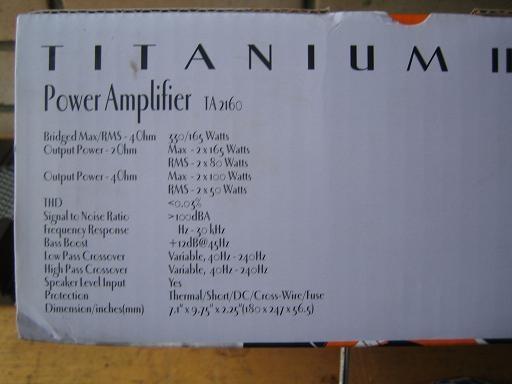 TITANIUM II
Power Amplifier TA2160
Bridged Max/RMS - 4Ohm 330/165 Watts
Output Power - 2Ohm Max - 2 x 165 Watts
RMS - 2 x 80 Watts
Output Power - 4Ohm Max - 2 x 100 Watts
RMS - 2 x 50 Watts
THD <0.03%
Signal to Noise Ratio >100dBA
Frequency Response Hz - 30 kHz
Bass Boost +12dB@45Hz
Low Pass Crossover Variable, 40Hz - 240Hz
High Pass Crossover Variable, 40Hz - 240Hz
Speaker Level Input Yes
Protection Thermal/Short/DC/Cross-Wire/Fuse
Dimension/inches(mm) 7.1" x 9.75" x 2.25"(180 x 247 x 56.5)